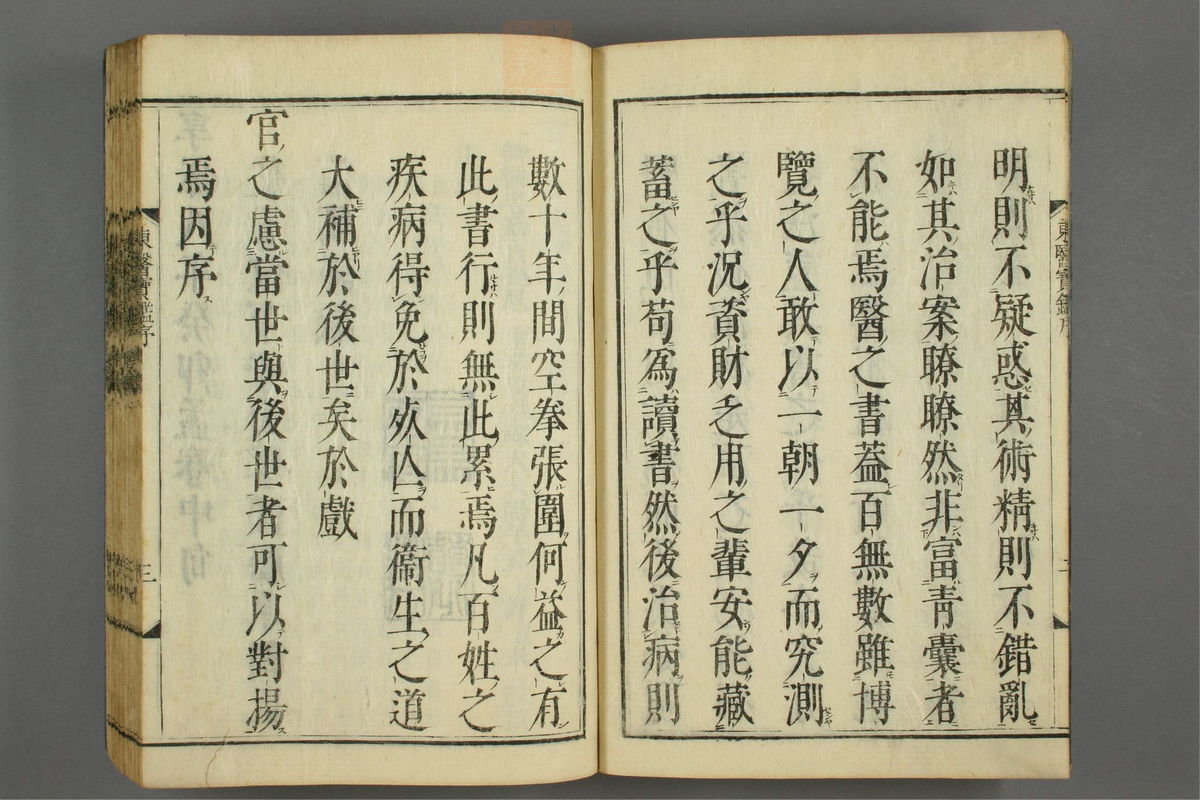 明則不疑惑其術精則不錯亂
如其治案瞭瞭然非富青囊者
不能焉醫之書蓋百無數雖博
覽之人敢以一朝一夕而究測
之乎況資財乏用之輩安能藏
蓄之乎苟爲讀書然後治病則
東醫寶鑑序
數十年間空拳張圍何益之有
此書行則無此累焉凡百姓之
疾病得免於夭亾而衞生之道
大補於後世矣於戲
官之慮當世與後世者可以對揚
焉因序
東醫寶鑑序
三